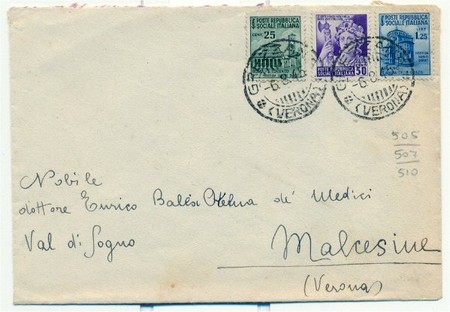 POSTE REPUBBLICA
SOCIALE ITALIANA
25
50
POSTE REPUBBLICA
SOCIALE ITALIANA
1,25
(VERONA)
(VERONA)
505
507
510
Nobile
dottore Enrico de' Medici
Val di Sogno
Malcesine
(Verona)